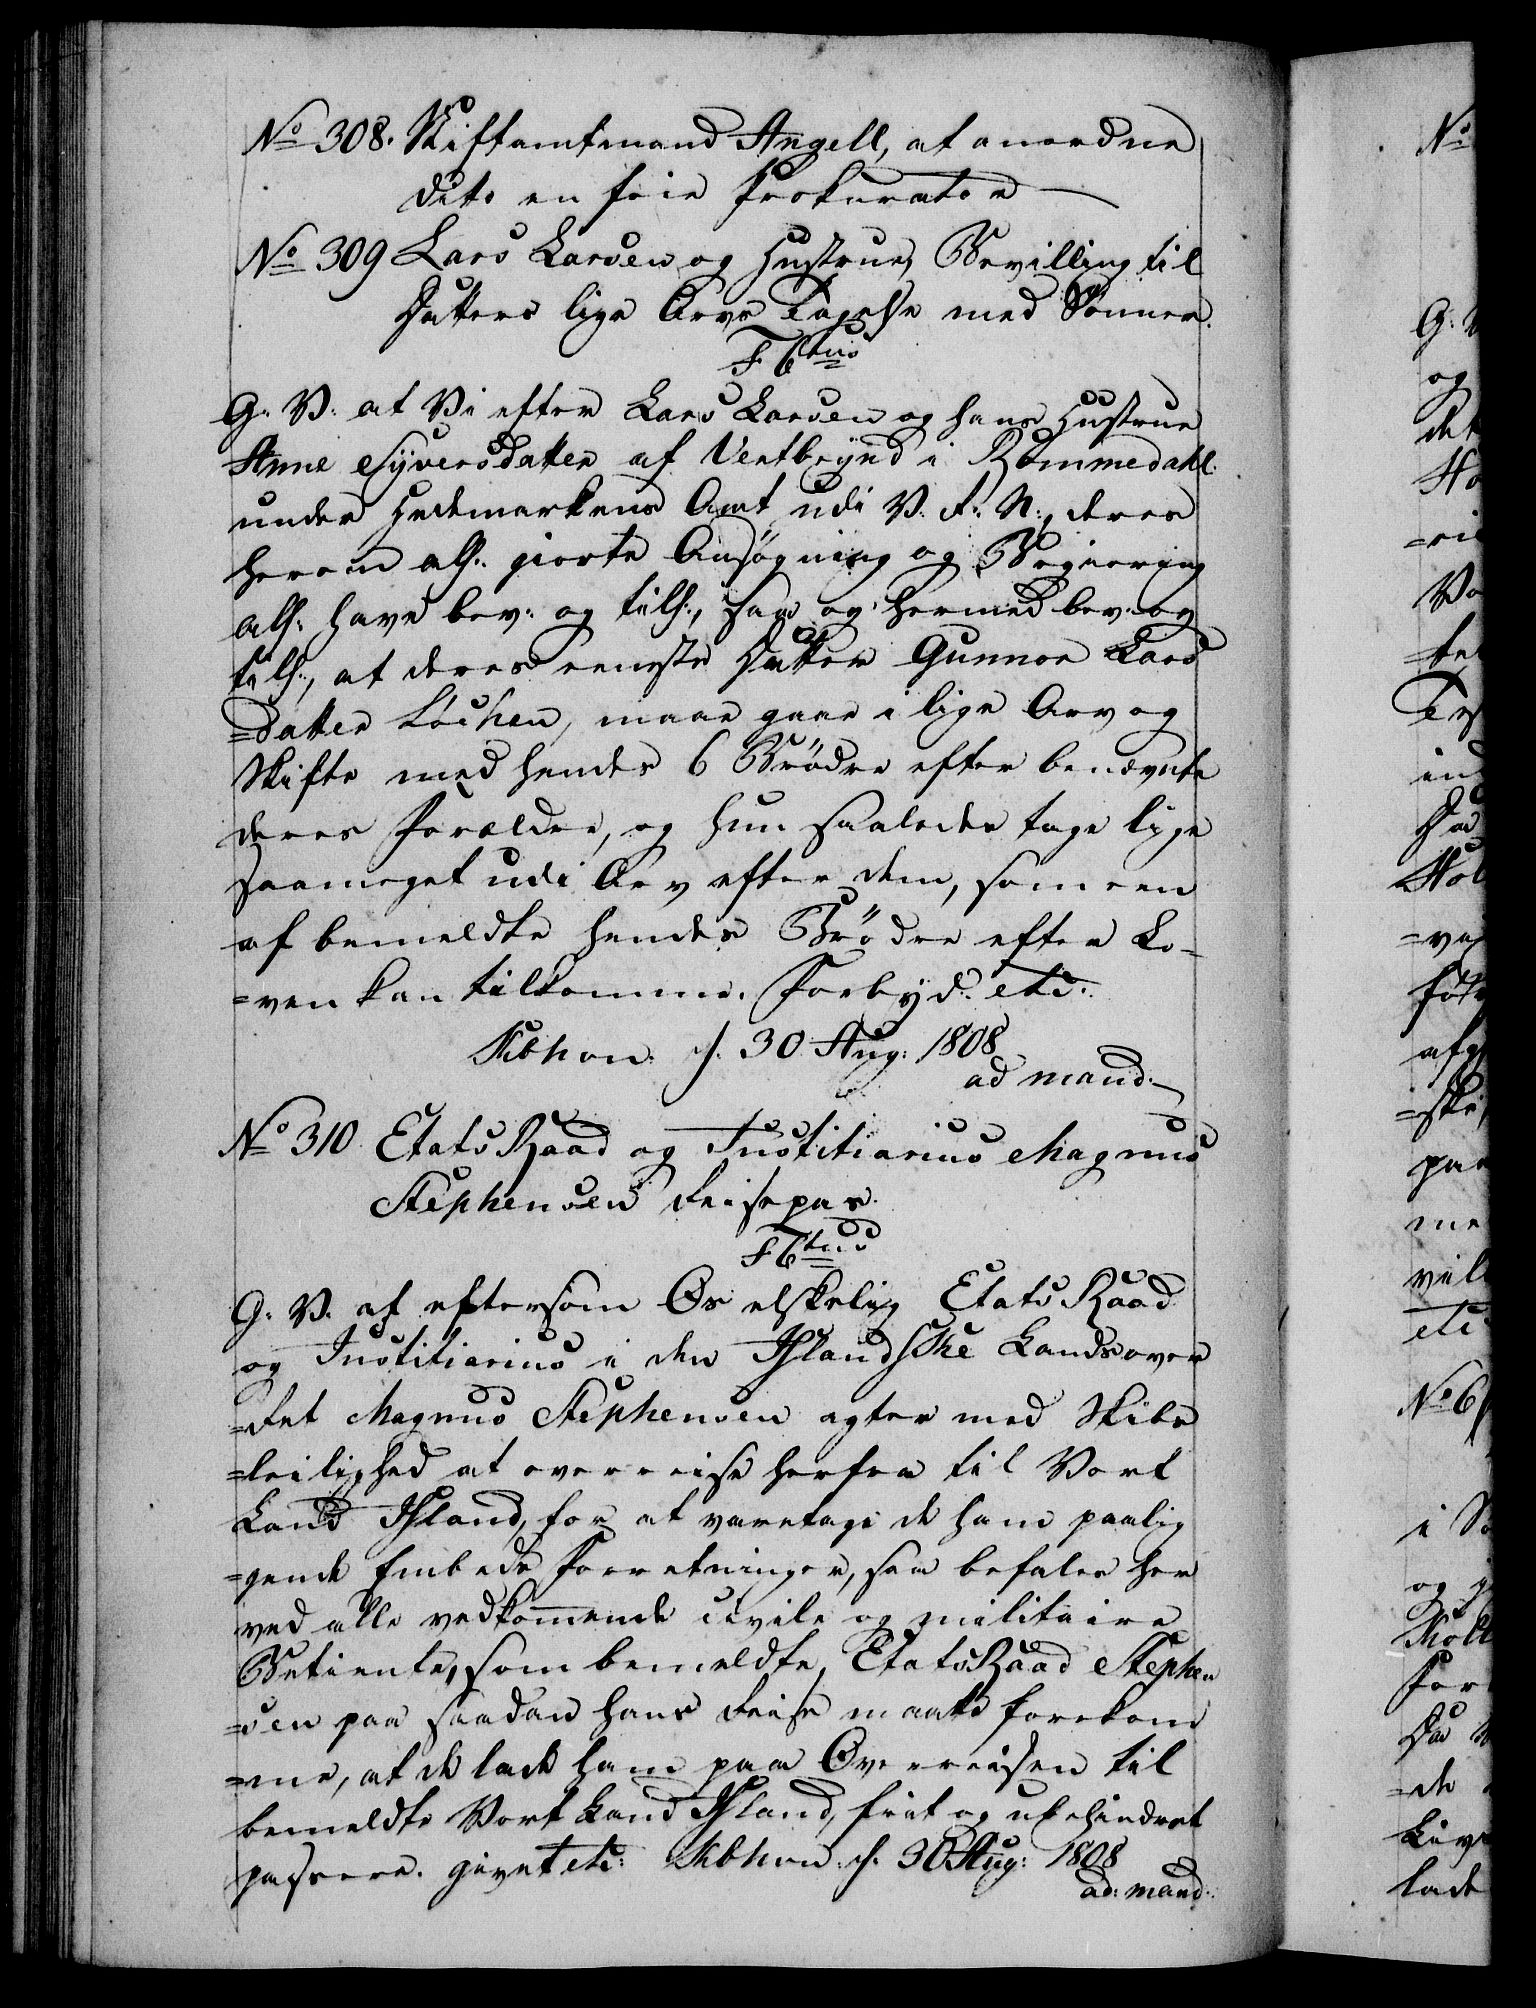 No 308. Stiftamtmand Angell, at anordne
dito en frie Prokurator
No 309 Lars Larsen og Hustrue, Bevilling til
Datters lige Arvs Tagelse med Sønner.
F 6tus
G: V: at Vi efter Lars Larsen og hans Hustrue
Anne Syversdatter af Vertbrynd i Rommedahl
under Hedemarkens Amt udi V. R. N:, deres
herom all: giorte Ansøgning og Begiering
all: have bev: og till:, saa og hermed bev: og
till:, at deres eeneste Datter Gunnor Lars
=datter Løchen, maae gaae i lige Arv og
Skifte med hendes 6 Brødre efter benævnte
deres Forældre, og hun saaledes tage lige
saameget udi Arv efter dem, som een
af bemeldte hendes Brødre efter Lo-
=ven kan tilkomme. Forbyd: etc:
Kbhvn: d. 30 Aug: 1808
ad mand:
No 310 Etats Raad og Justitiarius Magnus
Stephensen Reisepas.
F 6tus
G: V. at eftersom Os elskelig Etats Raad
og Justitiarius i den Islandske Landsover
=Ret Magnus Stephensen agter med Skibs
=leilighed at overreise herfra til Vort
Land Island, for at varetage de ham paalig
=gende Embeds Forretninger, saa befales her
ved alle vedkommende civile og militaire
Betiente, som bemeldte, Etats Raad Stephen
=sen paa saadan hans Reise maatte forekom
=me, at de lade ham paa Overreisen til
bemeldte Vort Land Island, frit og ubehindret
passere. givet etc: Kbhvn: d. 30 Aug: 1808
ad: mand:
No
G: V
og
det
Ho
Vo
ind
Hol
afg
=ske
paa
me
vil
etc
No 6
i S
og g
Møll
For
=de
Lav
lade